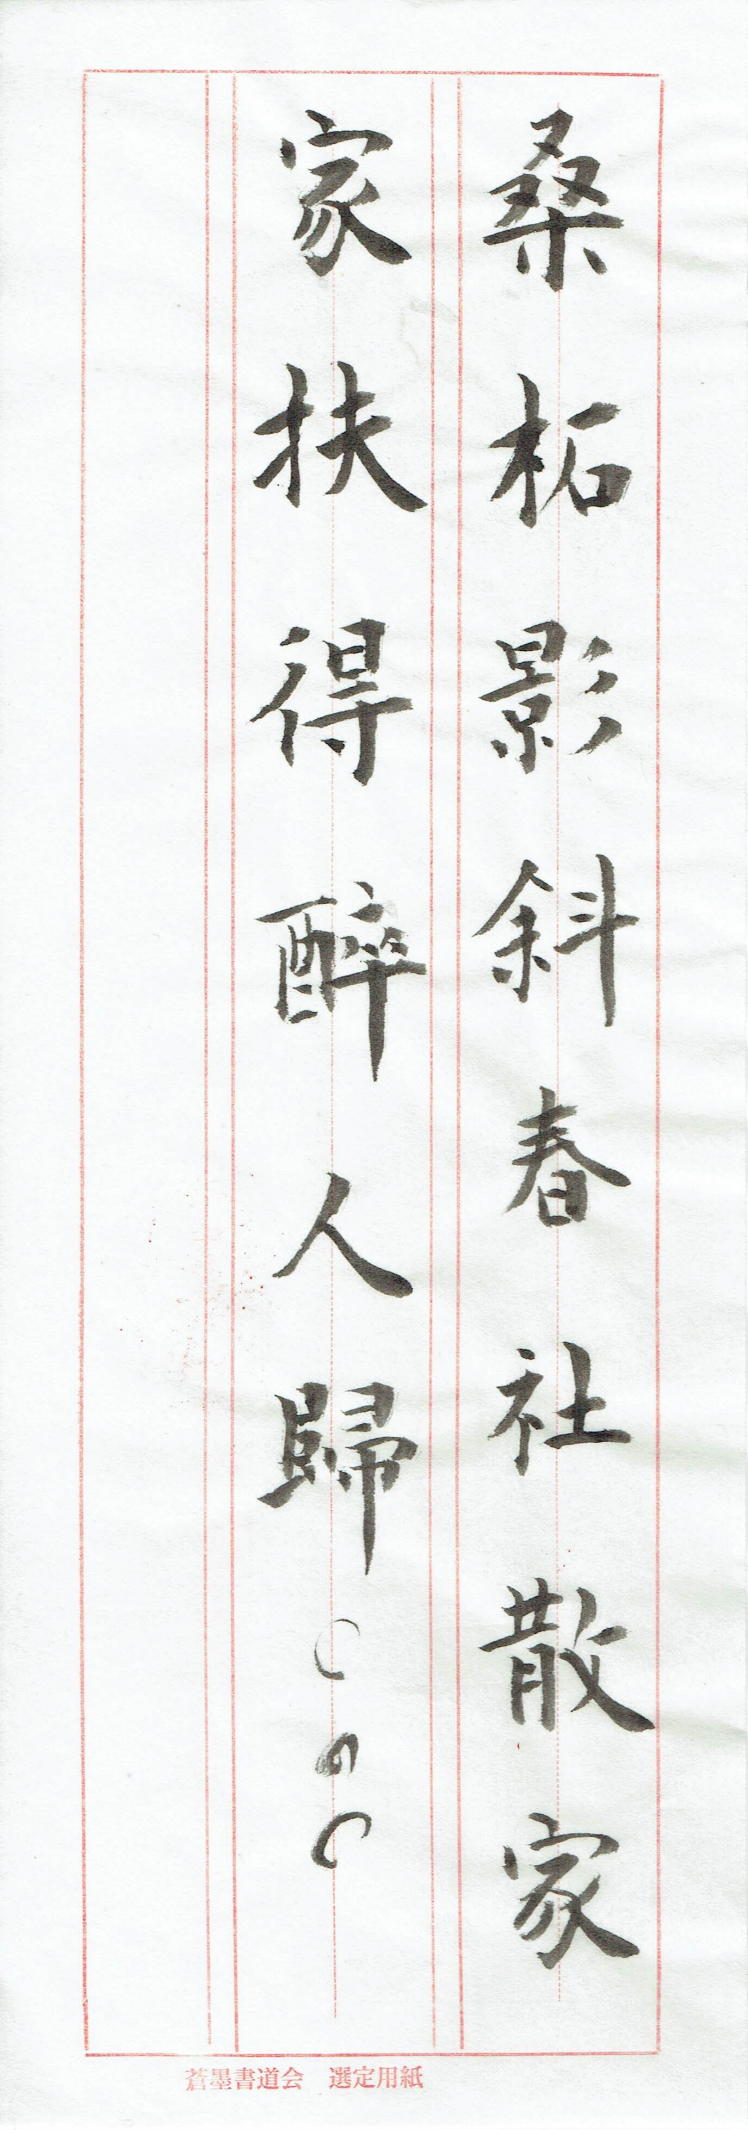 桑柘影斜春社散家
家扶得醉人歸
蒼墨書道会　選定用紙